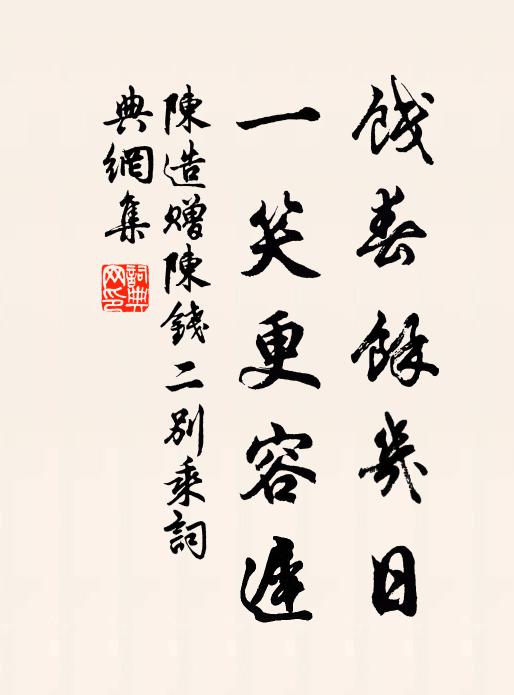 餞春餘幾日
一笑更容遲
陳造贈陳錢二別乘詞
典網集
詞典網印